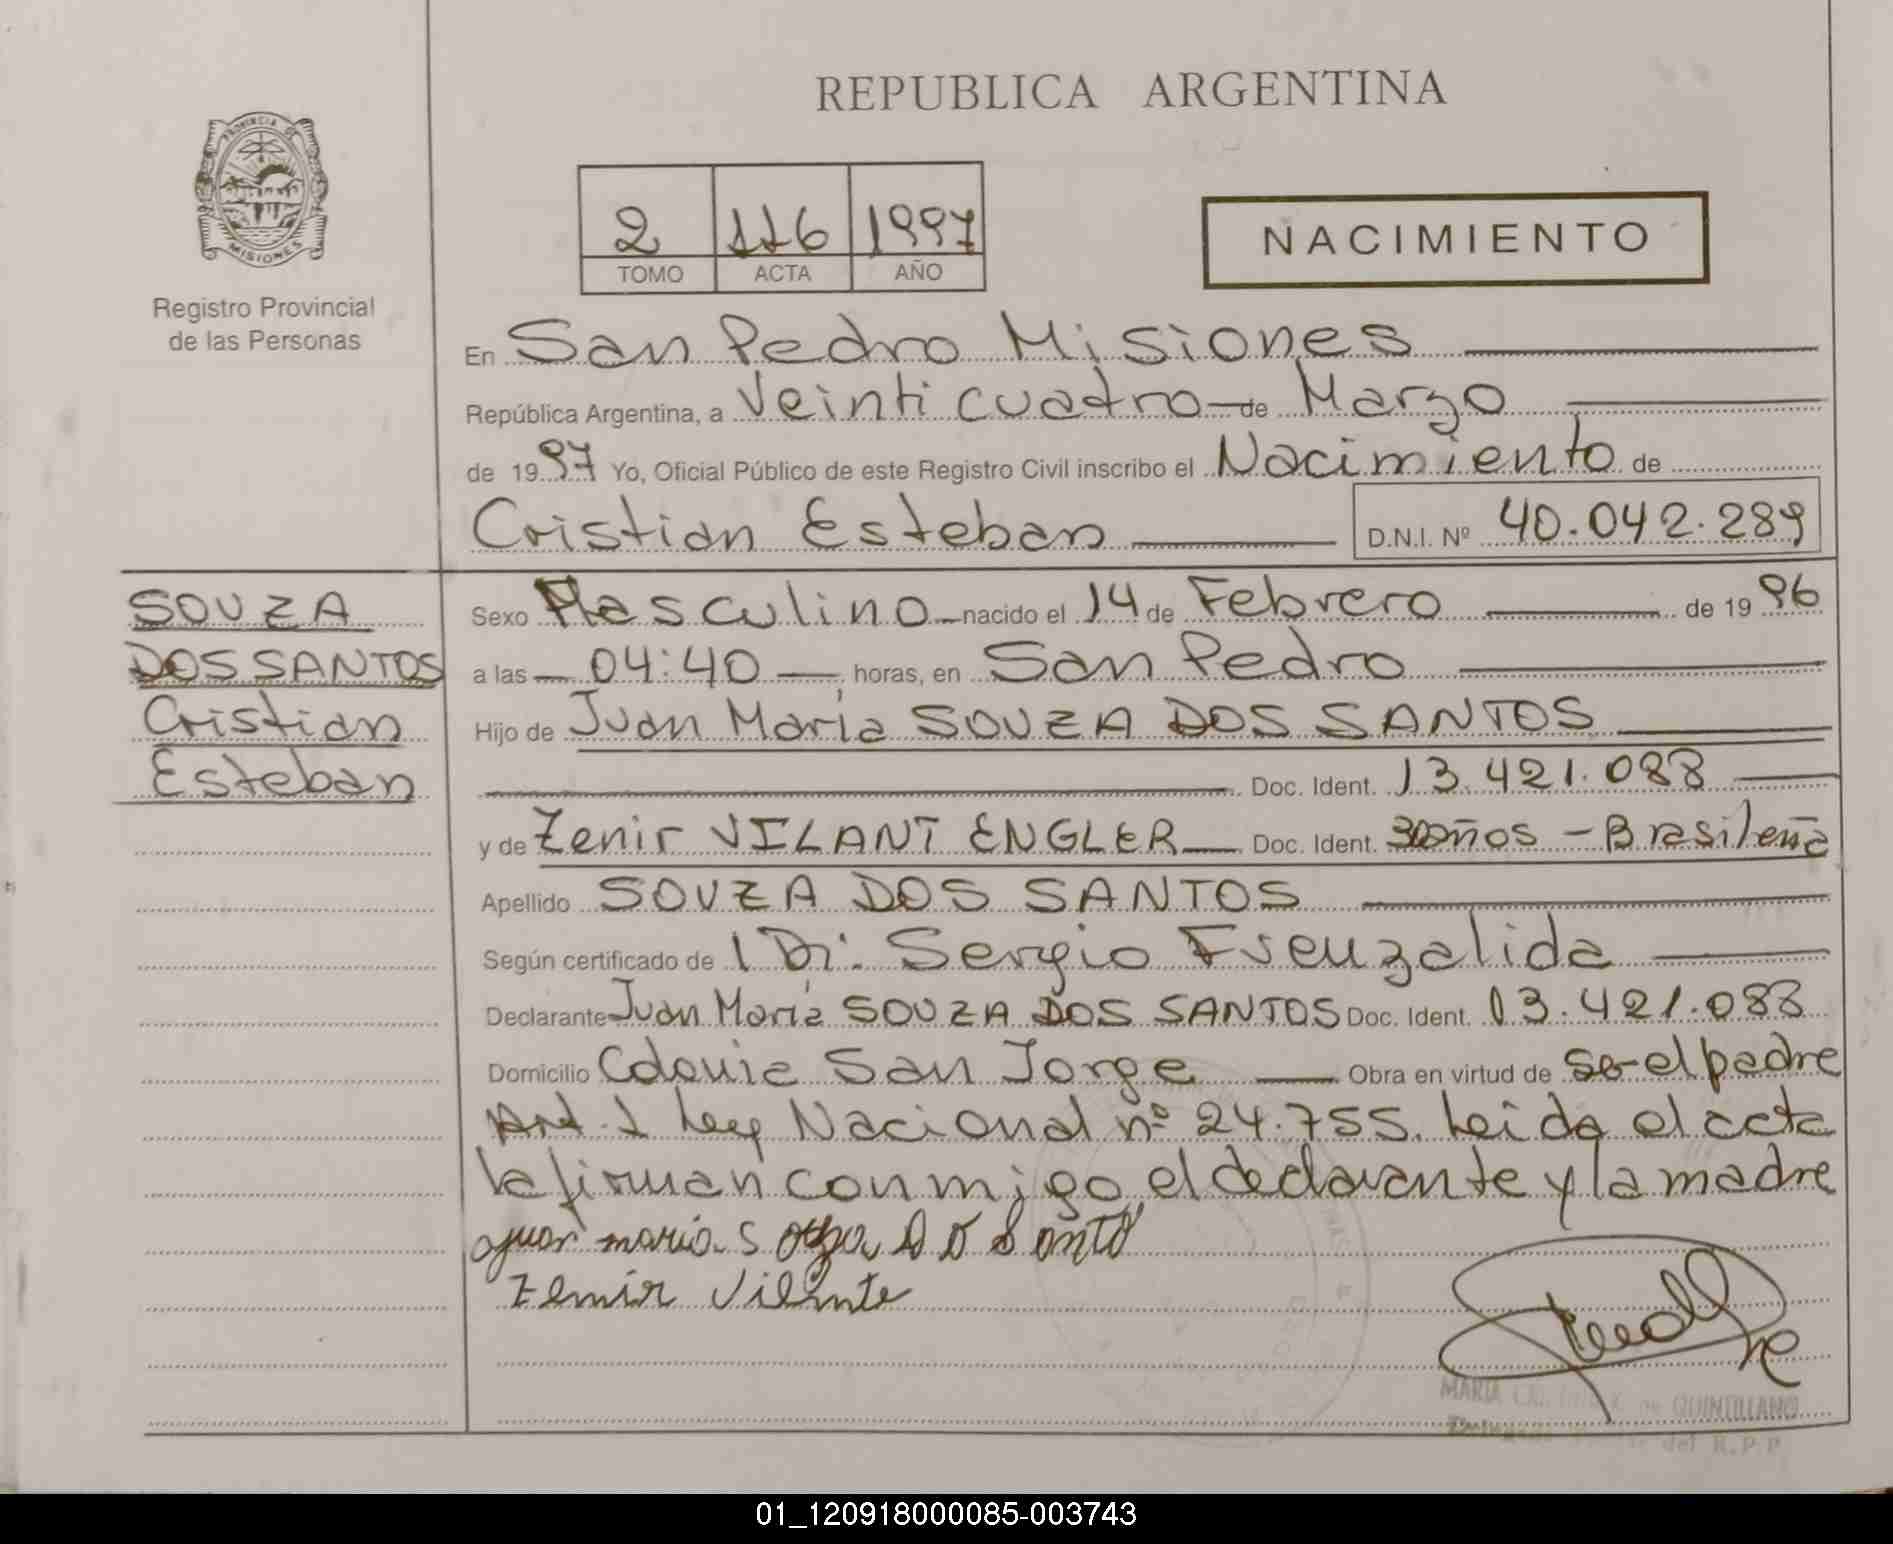 REPUBLICA ARGENTINA
PROVINCIA DE
MISIONES
Registro Provincial
de las Personas
2 116 1997
TOMO ACTA AÑO
NACIMIENTO
En San Pedro Misiones
República Argentina, a Veinticuatro de Marzo
de 1997 Yo, Oficial Público de este Registro Civil inscribo el Nacimiento de
Cristian Esteban D.N.I. Nº 40.042.289
SOUZA
DOS SANTOS
Cristian
Esteban
Sexo Masculino nacido el 14 de Febrero de 1996
a las 04:40 horas, en San Pedro
Hijo de Juan María SOUZA DOS SANTOS
Doc. Ident. 13.421.088
y de Zenir VILANT ENGLER Doc. Ident. 30años - Brasileña
Apellido SOUZA DOS SANTOS
Según certificado de Sergio Frenzalida
Declarante Juan María SOUZA DOS SANTOS Doc. Ident. 13.421.088
Domicilio Colonia San Jorge Obra en virtud de Se-el padre
Art. 1 Ley Nacional nº 24.755. Leida el acta
la firman conmigo el declarante y la madre
juan maria Souza D O Santo
Zemir Vilante
MARIA DE QUINTILLANO
del R.P.P
01_120918000085-003743